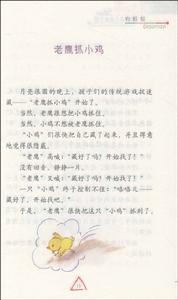 老鹰抓小鸡
月亮很圆的晚上，孩子们的传统游戏捉迷
藏——“老鹰抓小鸡”开始了。
当然，老鹰很想把小鸡抓住。
当然，小鸡不想被老鹰抓住。
“小鸡”们很快把自己藏了起来，并且得意
地觉得很隐蔽。
“老鹰”高喊：“藏好了吗？开始找了！”
没有回音。静静一片。
“老鹰”又喊：“藏好了吗？开始找了！”
一只“小鸡”终于控制不住：“咯咯儿——
藏好了，开始找吧。”
于是，“老鹰”很快把这只“小鸡”抓到了。